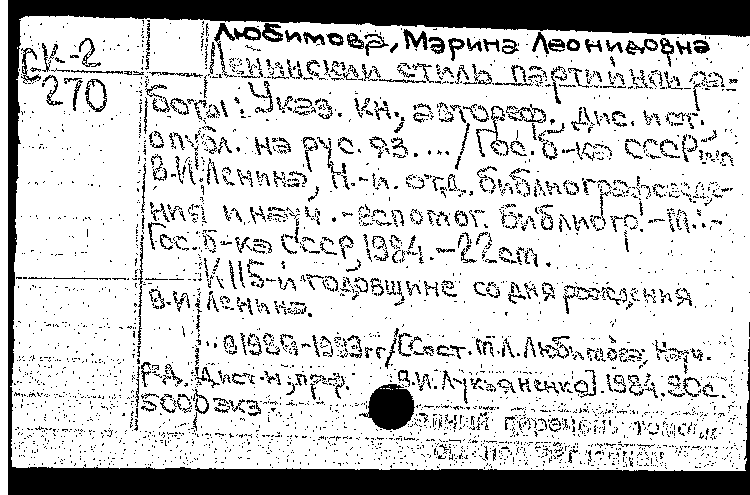 СК-2
270
Любимова, Марина Леонидовна
Ленинский стиль партийной ра-
боты: Указ. кн., автореф., дис. и ст.
опубл. на рус. яз. .../Гос. б-ка СССР им
В.И.Ленина, Н.-и. отд. библиографоведе-
ния и науч.-вспомог. библиогр.-М.:-
Гос. б-ка СССР, 1984.-22см.
К 115-й годовщине со дня рождения
В.И.Ленина.
...в 1980-1983гг/[Сост. М.Л.Любимова, Науч.
ред. д.ист.н, проф. В.И.Лукьяненко]. 1984. 20с.
5000 экз
перечень